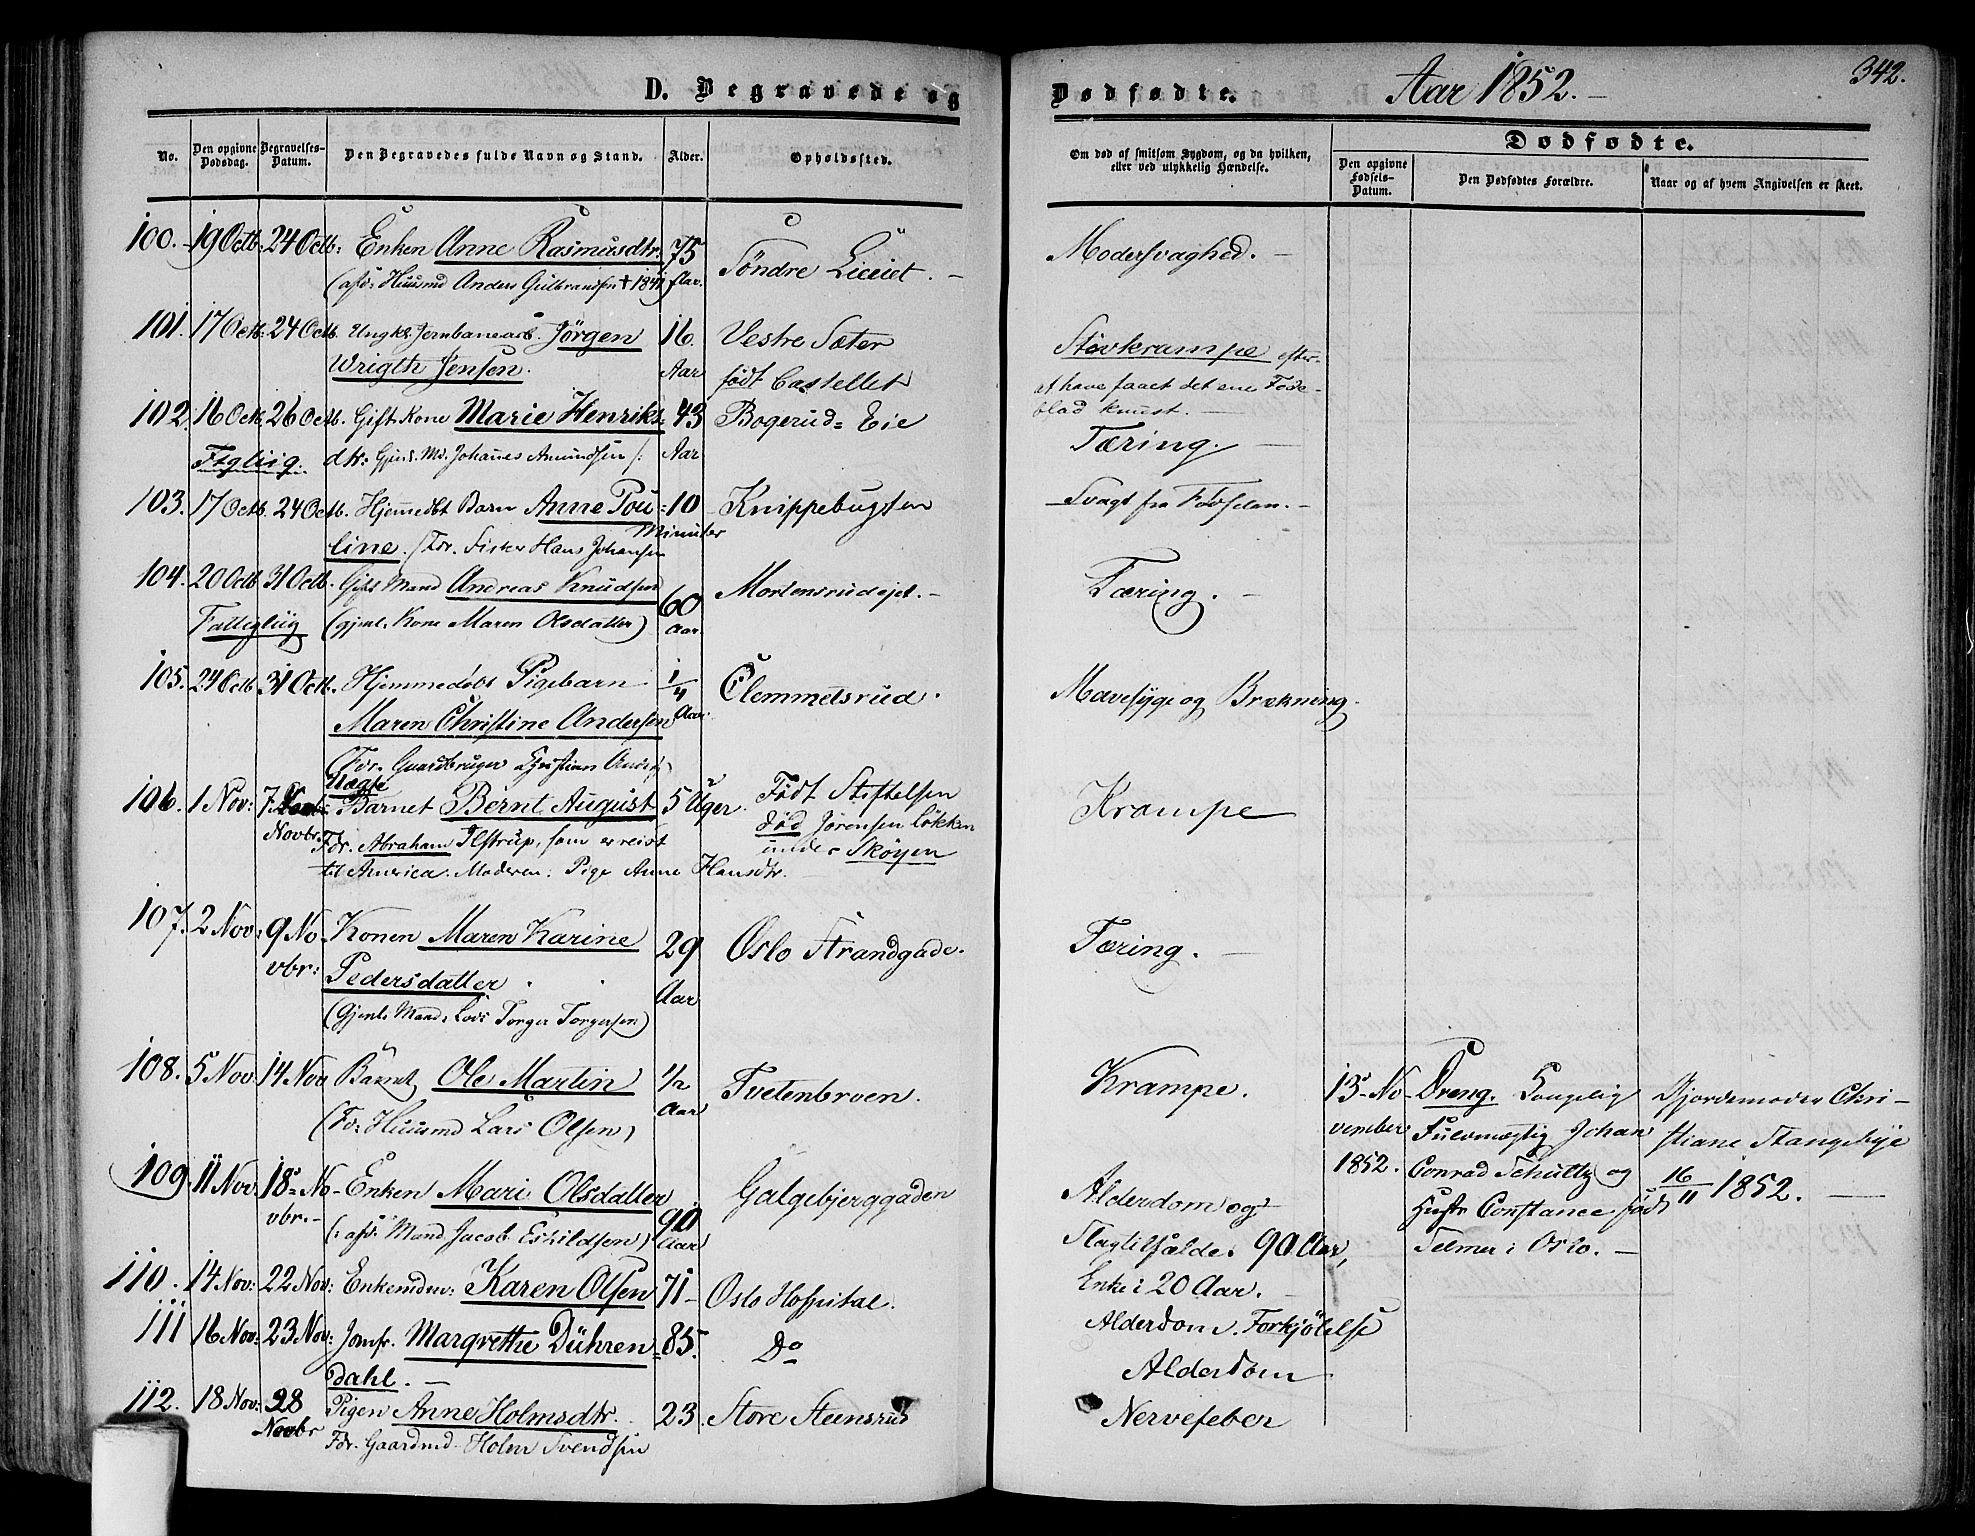 D. Begravede og Dødfødte. Aar 1852. 342.
No. Den opgivne Dødsdag. Begravelses-Datum. Den Begravedes fulde Navn og Stand. Alder. Opholdssted.
Om død af smitsom Sygdom, og da hvilken, eller ved ulykkelig Hændelse.
Dødfødte.
Den opgivne Fødsels-Datum. Den Dødfødtes Forældre. Naar og af hvem Angivelsen er skeet.
100. 19 Octb: 24 Octb: Enken Anne Rasmusdtr. 75 Søndre Modersvaghed.
(afd: Huusmd Anders Gulbrandsen † Aar.
101. 17 Octb: 24 Octb. Ungk. Jernbanearb. Jörgen 16. Vestre Sæter Stivkrampe efter
Wrigth Jensen. Aar født Castellet at have faaet det ene Fode-
blad knust.
102. 16 Octb. 26 Octb. Gift Kone Marie Henriks= 43 Bogerud= Eie Tæring.
dtr: Md. Johannes Amundsen /: Aar
103. 17 Octb. 24 Octb. Hjemmedbt Barn Anne Pou= 10 Knippebugten Svagt fra Fødselen.
line. (Fdr. Hans Johansen Minuter
104. 20 Octb 31 Octb. Gift Mand Andreas Knudsen 60 Mortensrudejet. Tæring.
Fattigliig (gjenl. Kone Maren Olsdatter) Aar.
105. 24 Octb 31 Octb. Hjemmedøbt Pigebarn 1/4 Clemmetsrud. Mavesyge og Brækning.
Maren Christine Andersen Aar.
(Fdr. Gaardbruger Christian
106. 1 Nov: 7. Novbr. Uægte Barnet Bernt August 5 Uger. Født Stiftelsen Krampe
død Jörensen Løkken
Fdr. Abraham Ilstrup, som er reist under Skøyen
til America. Moderen: Pige Anne Hansdtr.
107. 2 Nov: 9 No- Konen Maren Karine 29 Oslo Strandgade. Tæring.
vbr: Pedersdatter Aar
(Gjenl. Mand: Lods Torger Torgersen)
108. 5 Nov: 14 Nov Barnet Ole Martin 1/2 Tvetenbroen. Krampe. 13- No- Dreng. Gjordemoder Chri-
(Fdr Huusmd Lars Olsen) Aar vember Fuldmægtig Johan stiane Stangebye
1852. Conrad Schultz og 16/11 1852.
109 11 Nov. 18- No- Enken Mari Olsdatter 90 Galgebjerggaden Alderdom og Hustr Constance født
vbr.- (: afd: Mand Jacob Eskildsen) Aar Slagtilfælde: 90 Aar, Selmer i Oslo.
Enke i 20 Aar.
110. 14 Nov: 22 Nov: Enkemdm: Karen Olsen 71- Oslo Hospital. Alderdom. Forkjölelse
111 16 Nov: 23 Nov: Jomfr. Margrethe Dühren= 85. Do Alderdom
dahl.
112. 18 Nov: 28 Pigen Anne Holmsdtr. 23. Store Steensrud Nervefeber
Novbr Fdr. Gaardmd. Holm Svendsen